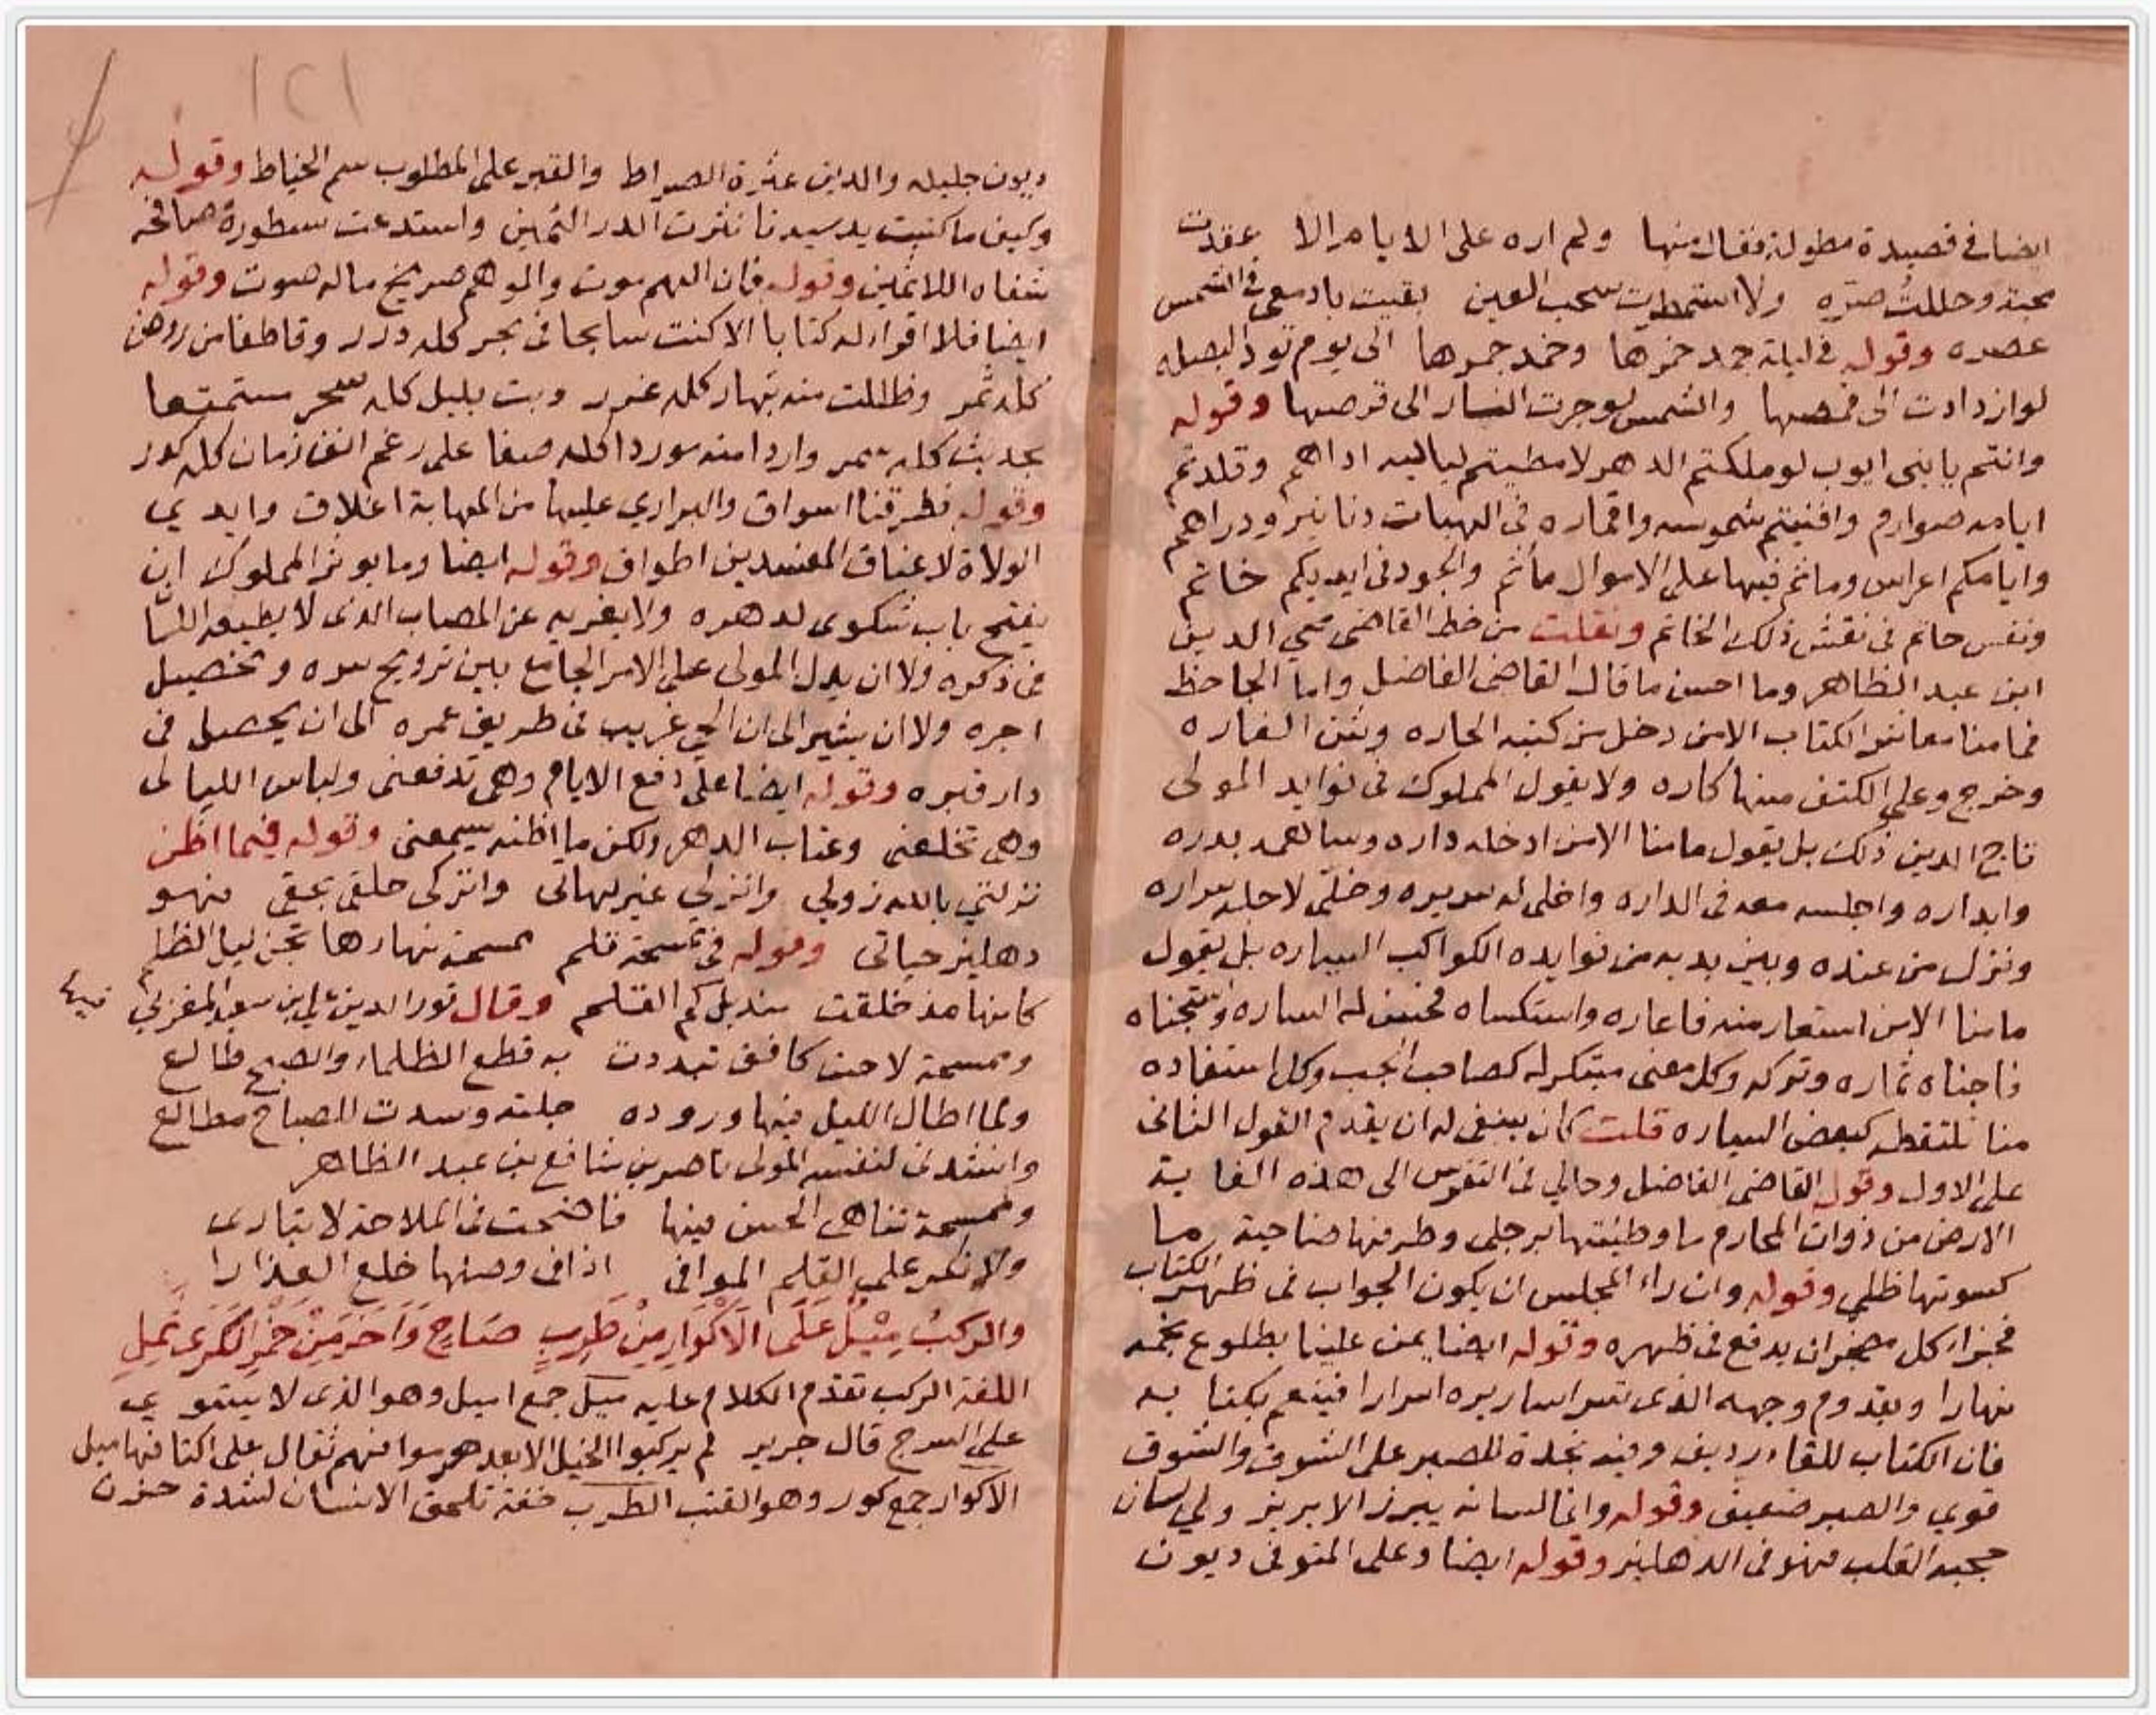 ايضا في قصيدة مطولة فقال منها ولم اره على الايام الا عقدت
محبته وحللت صبره ولا استمطرت سحب العين بقيت بادمعي في الشمس
عصره وقوله في ليلة جمد خمرها وخمد جمرها الى يوم تود البصله
لو ازدادت الى قمصها والشمس لو جرت النار الى قرصها وقوله
وانتم يا بني ايوب لو ملكتم الدهر لامطيتم لياليه اداهم وقلدتم
ايامه صوارم وافنيتم شموسه واقماره في الهبات دنانير ودراهم
وايامكم اعراس وما تم فيها على الاموال مأتم والجود في ايديكم خاتم
ونفس حاتم في نقش ذلك الخاتم ونقلت من خط القاضي محيي الدين
ابن عبد الظاهر وما احسن ما قال القاضي الفاضل واما الجاحظ
فما منا معاشر الكتاب الا من دخل من كتبه الحاره وشن الغاره
وخرج وعلى الكتف منها كاره ولا يقول المملوك في فوايد المولى
تاج الدين ذلك بل يقول ما منا الا من ادخله داره وسالعه بدره
وابداره واجلسه معه في الداره واخلى له سريره وخلى لاجله سراره
ونزل من عنده وبين يديه من فوايده الكواكب السياره بل يقول
ما منا الا من استعار منه فاعاره واستكساه فحسن له الساره واستجناه
فاجناه ثماره وتركه وكل معنى مبتكر له كصاحب الجب وكل استفاده
منا تلتقطه كبعض السياره قلت كان ينبغي له ان يقدم القول الثاني
على الاول وقول القاضي الفاضل وحالي في التفرس الى هذه الغاية
الارض من ذوات المحارم ما وطئتها برجلي وطرفها صاحية ما
كسوتها ظلي وقوله وان راء المجلس ان يكون الجواب في ظهر الكتاب
فجزاء كل مهجران يدفع في ظهره وقوله ايضا يمن علينا بطلوع نجمه
نهارا وبقدوم وجهه الذي تسر اساريره اسرارا فينعم بكتابه
فان الكتاب للقاء رديف وفيه نجدة للصبر على الشوق والشوق
قوي والصبر ضعيف وقوله وانما لسانه يبرز الابريز ولي لسان
حجبه القلب فهو في الدهليز وقوله ايضا وعلى المتوفى ديون
ديون جليله والدين عثرة الصراط والقبر على المطلوب سم الخياط وقوله
وكيف ما كتبت يد سيدنا نثرت الدر الثمين واستدعت سطوره مصافحة
شفاه اللاثمين وقوله فان الهم موت والوهم صريخ ماله صوت وقوله
ايضا فلا اقرا له كتابا الا كنت سابحا في بحر كله درر وقاطفا من روض
كله ثمر وظللت منه بنهار كله غرر وبت بليل كله سحر مستمتعا
بحديث كله سمر واردا منه موردا كله صفا على رغم انف زمان كله كدر
وقوله فطرقنا اسواق والبراري عليها من المهابة اغلاق وايدي
الولاة لاعناق المفسدين اطواق وقوله ايضا وما يوثر المملوك ان
يفتح باب شكوى لدهره ولا يغريه عن المصاب الذي لا يطيعه اللسا
في ذكره ولا ان يدل المولى على الامر الجامع بين ترويح سره وتحصيل
اجره ولا ان يشير الى ان الحي غريب في طريق عمره الى ان يحصل في
دار قبره وقوله ايضا على دفع الايام وهي تدفعني ولباس الليالي
وهي تخلعني وعتاب الدهر ولكن ما اظنه يسمعني وقوله فيما اظن
نزلتني بالله زولي وانزلي غير لهاتي واتركي حلقي بحقي فهو
دهليز حياتي وقوله في ممسحة قلم ممسحة نهارها يجن ليل الظلم
كانها مذ خلقت منديل كم القلم وقال نور الدين علي ابن سعيد المغربي فيها
وممسحة لاحت كافق تبددت به قطع الظلماء والصبح طالع
ولما اطال الليل فيها وروده جلته وسدت للصباح مطالع
وانشدني لنفسه المولى ناصر بن شافع بن عبد الظاهر
وممسحة تناهى الحسن فيها فاضحت في الملاحة لا تبارى
ولا نكر على القلم الموافي اذا في وصنها خلع العذارا
والركب ميل على الاكوار من طرب صاح واخر من خمر الكرى ثمل
اللغة الركب تقدم الكلام عليه ميل جمع اميل وهو الذي لا يستوي
على السرج قال جرير لم يركبوا الخيل الا بعد هرموا فهم ثقال على اكتافها ميل
الاكوار جمع كور وهو القتب الطرب خفة تلحق الانسان لشدة حزن